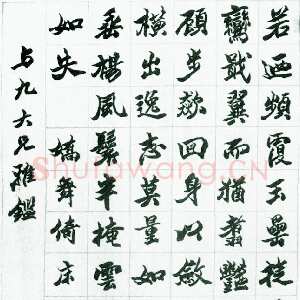 若迺頻霞玉壘從
鸞戢翼而猶翥豔
顧步欻回身以斂
橫出逸志莫量如
垂楊風鬟半掩雲
如失嬌舞倚床
九大兄雅鑑
Shufawang.CN